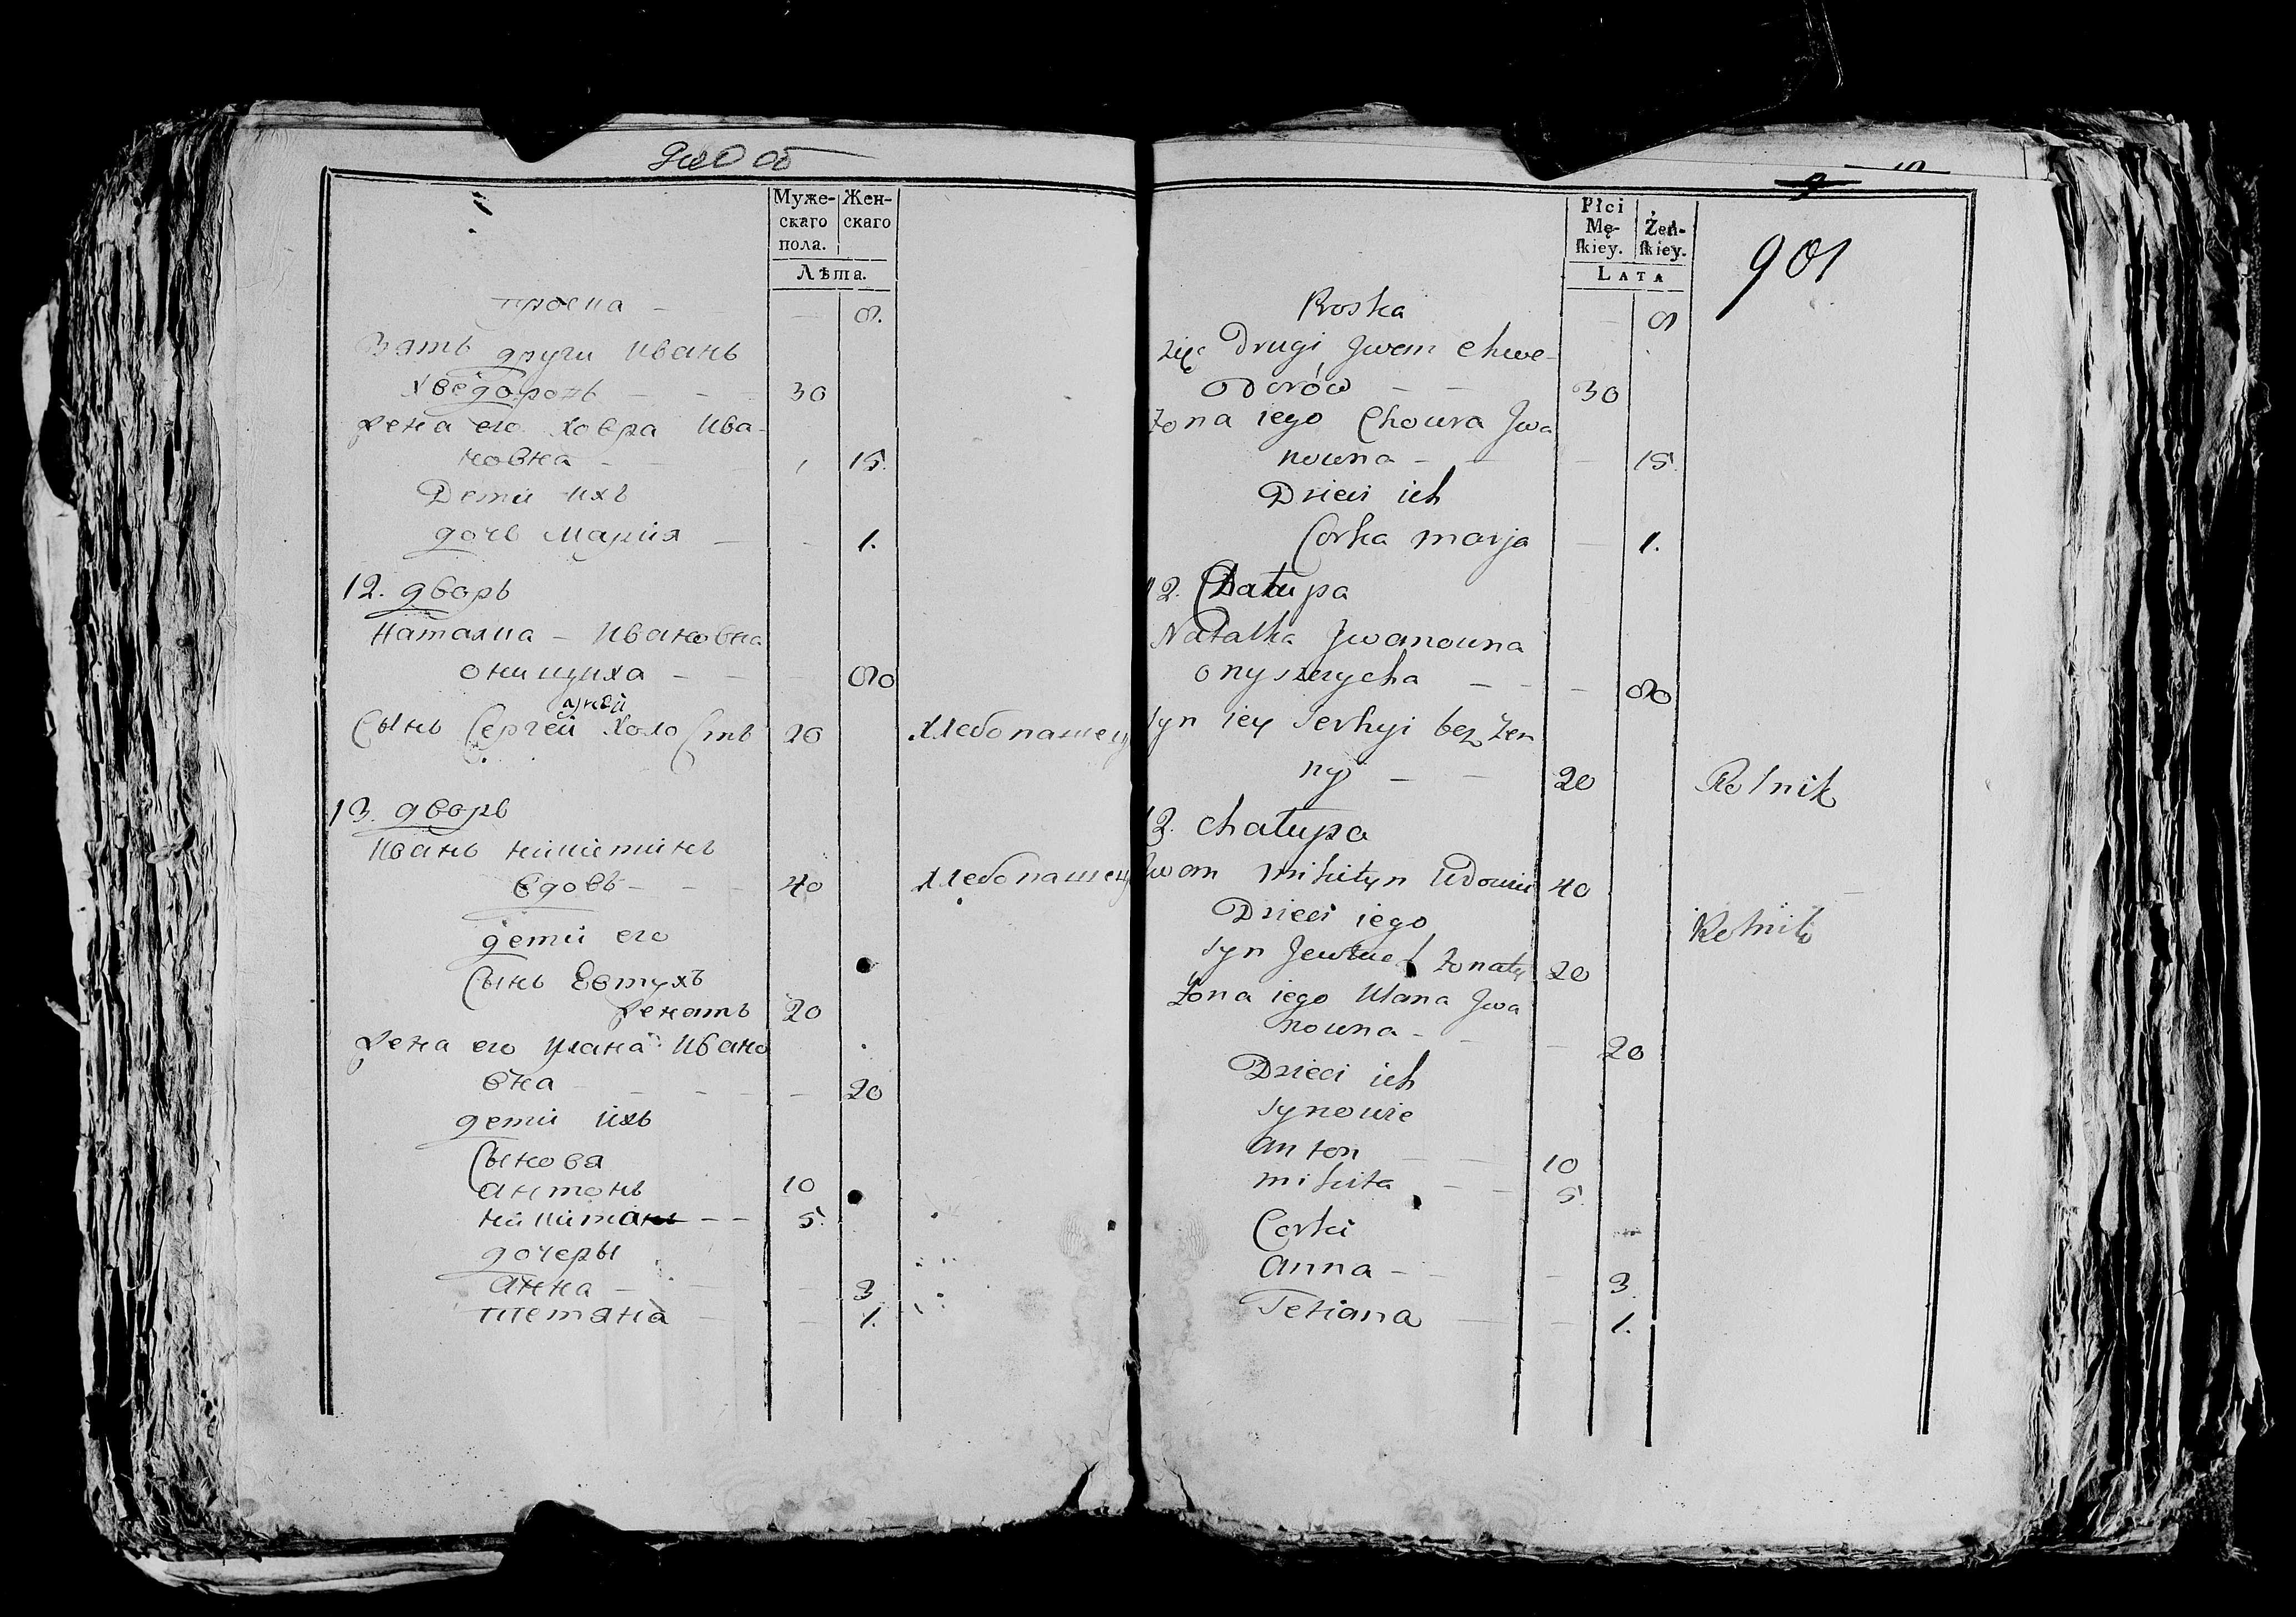 Муже-
скаго
пола.
Жен-
скаго
Лѣта.
Зять други Иванъ
Хведоровъ - - - 30
Жена его Ховра Ива-
новна - - 15.
Дети ихъ
дочь Мария - - 1.
12. дворъ
Наталка - Ивановна
онищиха - - - 80
Сынъ Сергей Холостъ 20 Хлебопашец
13. дворъ
Иванъ никитинъ
вдовъ - - - 40 Хлебопашец
дети его
Сынъ Евтухъ
женатъ 20
Жена его Улана Ивано
вна - - - - 20
дети ихъ
Сынова
антонъ 10
никита - - 5.
дочеры
анна - - 3
тетяна - - 1.
901
Płci
Mę-
skiey.
Żeń-
skiey.
LATA
Proska - 8
zięć Drugi Jwan Chwe-
odorów - - 30
żona iego Chowra Jwa
nowna - - - 15.
Dzieci ich
Corka marja - 1.
12. Chałupa
Natalka Jwanowna
onyszczycha - - - 80
syn iey Serhyi bez żen
ny - - 20 Rolnik
13. chałupa
Jwan mikityn Udowiec 40
Dzieci iego Rolnik
syn Jewtuch żonaty 20
żona iego Ulana Jwa
nowna - - - 20
Dzieci ich
synowie
anton - - 10
mikita - - 5.
Corki
anna - - - 3.
Tetiana - - 1.